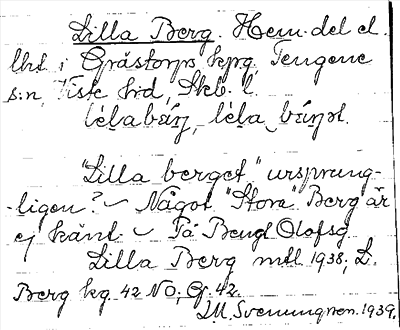 Lilla Berg. Hem.del el.
lht i Grästorps kpg. Tengene
s:n, Viste hrd, Skb. l.
lɛ́la bærj, lɛ́la
"Lilla berget" ursprung-
-ligen? Något "Stora" Berg är
ej känt. På Bengt Olofsg
Lilla Berg mtl 1938, L.
Berg kg. 42 NO, G. 42
I.M. Svenungsson. 1939.